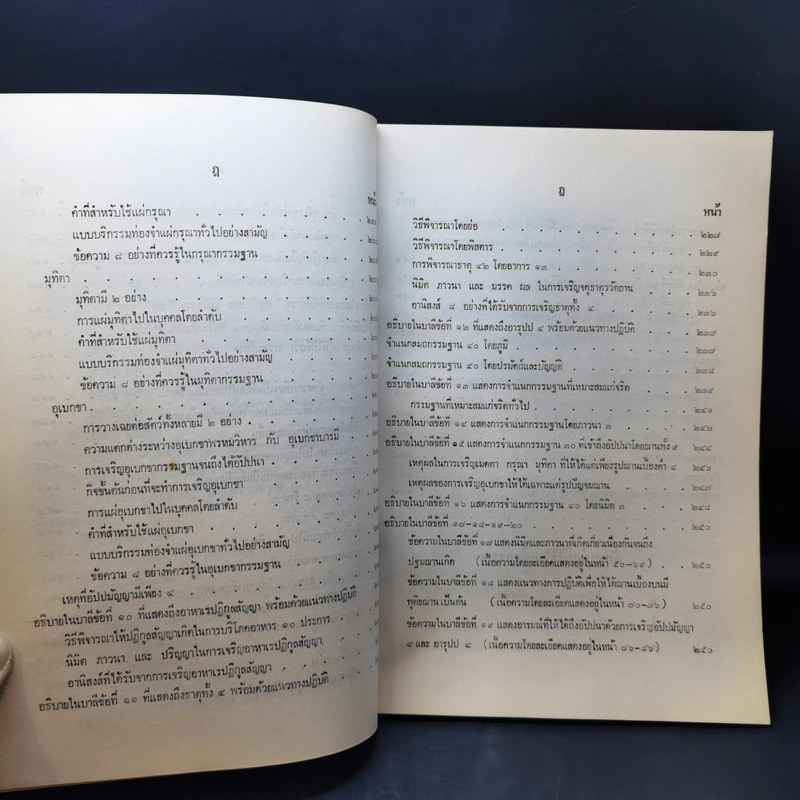 ฎ
หน้า
คำที่สำหรับใช้แผ่กรุณา
แบบบริกรรมท่องจำแผ่กรุณาทั่วไปอย่างสามัญ
ข้อความ ๘ อย่างที่ควรรู้ในกรุณากรรมฐาน
มุทิตา
มุทิตามี ๒ อย่าง
การแผ่มุทิตาไปในบุคคลโดยลำดับ
คำที่สำหรับใช้แผ่มุทิตา
แบบบริกรรมท่องจำแผ่มุทิตาทั่วไปอย่างสามัญ
ข้อความ ๘ อย่างที่ควรรู้ในมุทิตากรรมฐาน
อุเบกขา
การวางเฉยต่อสัตว์ทั้งหลายมี ๒ อย่าง
ความแตกต่างระหว่างอุเบกขาพรหมวิหาร กับ อุเบกขาบารมี
การเจริญอุเบกขากรรมฐานจนถึงได้อัปปนา
กิจขั้นต้นก่อนที่จะทำการเจริญอุเบกขา
การแผ่อุเบกขาไปในบุคคลโดยลำดับ
คำที่สำหรับใช้แผ่อุเบกขา
แบบบริกรรมท่องจำแผ่อุเบกขาทั่วไปอย่างสามัญ
ข้อความ ๘ อย่างที่ควรรู้ในอุเบกขากรรมฐาน
เหตุที่อัปปมัญญามีเพียง ๔
อธิบายในบาลีข้อที่ ๑๐ ที่แสดงถึงอาหาเรปฏิกูลสัญญา พร้อมด้วยแนวทางปฏิบัติ
วิธีพิจารณาให้ปฏิกูลสัญญาเกิดในการบริโภคอาหาร ๑๐ ประการ
นิมิต ภาวนา และ ปริญญาในการเจริญอาหาเรปฏิกูลสัญญา
อานิสงส์ที่ได้รับจากการเจริญอาหาเรปฏิกูลสัญญา
อธิบายในบาลีข้อที่ ๑๑ ที่แสดงถึงธาตุทั้ง ๔ พร้อมด้วยแนวทางปฏิบัติ
หน้า
วิธีพิจารณาโดยย่อ ๒๒๗
วิธีพิจารณาโดยพิสดาร ๒๒๙
การพิจารณาธาตุ ๔๒ โดยอาการ ๑๓ ๒๓๐
นิมิต ภาวนา และ มรรค ผล ในการเจริญจตุธาตุววัตถาน ๒๓๖
อานิสงส์ ๘ อย่างที่ได้รับจากการเจริญธาตุทั้ง ๔ ๒๓๖
อธิบายในบาลีข้อที่ ๑๒ ที่แสดงถึงอารุปป ๔ พร้อมด้วยแนวทางปฏิบัติ ๒๓๗
จำแนกสมถกรรมฐาน ๔๐ โดยภูมิ ๒๓๗
จำแนกสมถกรรมฐาน ๔๐ โดยปรมัตถ์และบัญญัติ ๒๓๘
อธิบายในบาลีข้อที่ ๑๓ แสดงการจำแนกกรรมฐานที่เหมาะสมแก่จริต ๒๓๙
กรรมฐานที่เหมาะสมแก่จริตทั่วไป ๒๔๑
อธิบายในบาลีข้อที่ ๑๔ แสดงการจำแนกกรรมฐานโดยภาวนา ๓ ๒๔๒
อธิบายในบาลีข้อที่ ๑๕ แสดงการจำแนกกรรมฐาน ๓๐ ที่เข้าถึงอัปปนาโดยฌานทั้ง ๕ ๒๔๔
เหตุผลในการเจริญเมตตา กรุณา มุทิตา ที่ให้ได้แก่เพียงรูปฌานเบื้องต่ำ ๔ ๒๔๖
เหตุผลของการเจริญอุเบกขาให้ได้เฉพาะแต่รูปปัญจมฌาน ๒๔๗
อธิบายในบาลีข้อที่ ๑๖ แสดงการจำแนกกรรมฐาน ๔๐ โดยนิมิต ๓ ๒๔๘
อธิบายในบาลีข้อที่ ๑๗-๑๘-๑๙-๒๐ ๒๕๐
ข้อความในบาลีข้อที่ ๑๗ แสดงนิมิตและภาวนาที่เกิดเกี่ยวเนื่องกันจนถึง
ปฐมฌานเกิด (เนื้อความโดยละเอียดแสดงอยู่ในหน้า ๕๐-๖๙) ๒๕๐
ข้อความในบาลีข้อที่ ๑๘ แสดงแนวทางการปฏิบัติเพื่อให้ได้ฌานเบื้องบนมี
ทุติยฌานเป็นต้น (เนื้อความโดยละเอียดแสดงอยู่ในหน้า ๗๐-๗๖) ๒๕๐
ข้อความในบาลีข้อที่ ๑๙ แสดงอารมณ์ที่ให้ได้ถึงอัปปนาด้วยการเจริญอัปปมัญญา
๔ และ อารุปป ๔ (เนื้อความโดยละเอียดแสดงอยู่ในหน้า ๘๖-๘๖) ๒๕๐